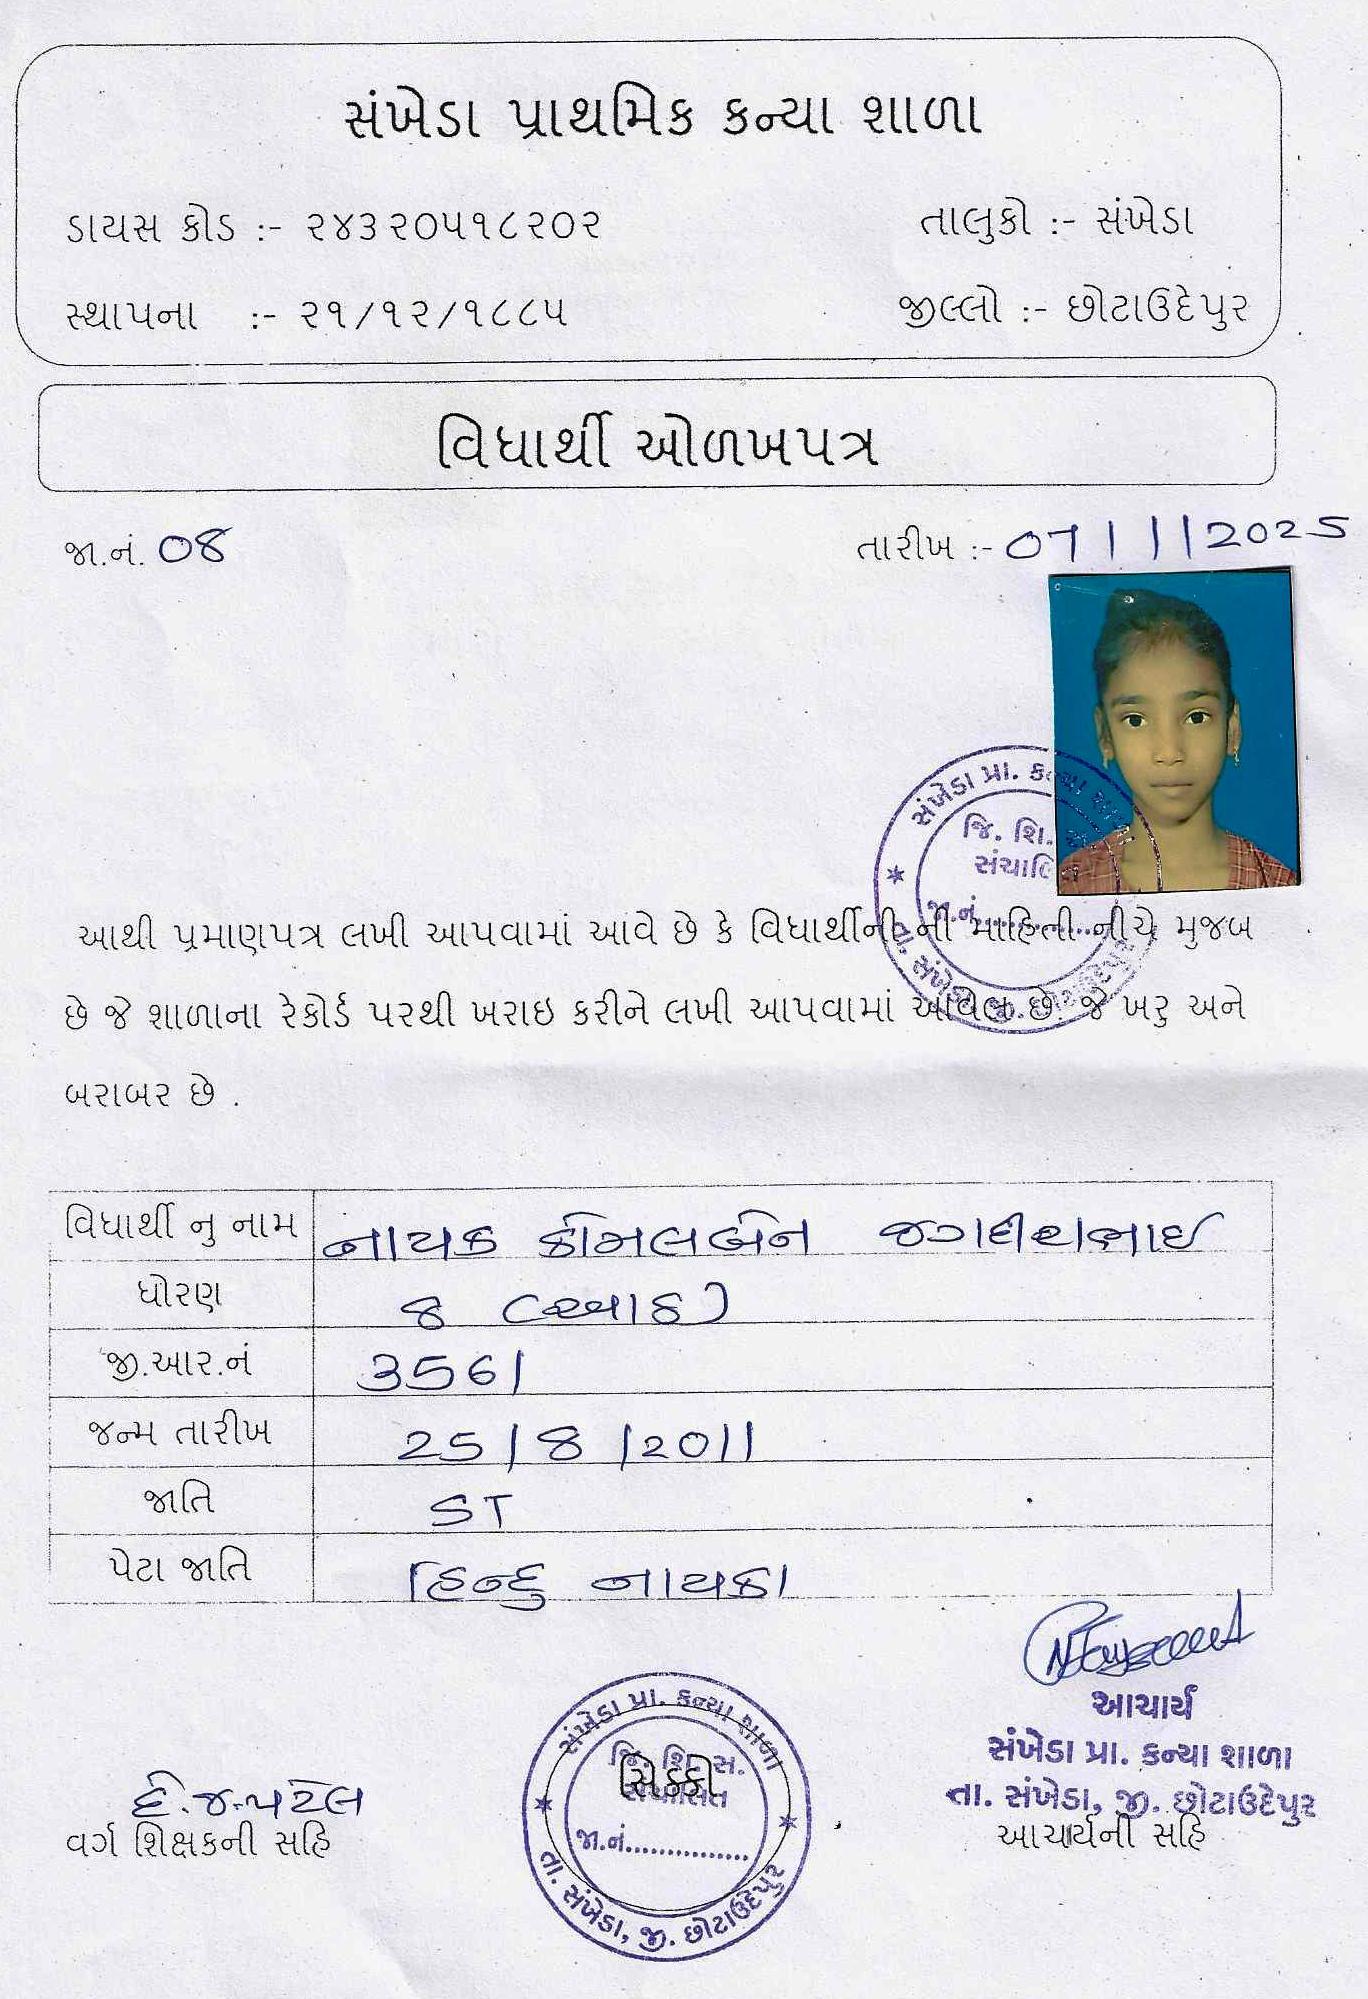 સંખેડા પ્રાથમિક કન્યા શાળા
ડાયસ કોડ :- ૨૪૩૨૦૫૧૮૨૦૨ તાલુકો :- સંખેડા
સ્થાપના :- ૨૧/૧૨/૧૮૮૫ જીલ્લો :- છોટાઉદેપુર
વિધાર્થી ઓળખપત્ર
જા.નં. 08 તારીખ :- 07/1/2025
સંખેડા પ્રા. કન્યા શાળા
જિ. શિ. સ.
સંચાલિત
જા.નં.
તા. સંખેડા, જી. છોટાઉદેપુર
આથી પ્રમાણપત્ર લખી આપવામાં આવે છે કે વિધાર્થીની ની માહિતી નીચે મુજબ
છે જે શાળાના રેકોર્ડ પરથી ખરાઇ કરીને લખી આપવામાં આવેલ છે. જે ખરુ અને
બરાબર છે .
વિધાર્થી નુ નામ નાયક કોમલબેન જગદીશભાઈ
ધોરણ 8 (આઠ)
જી.આર.નં 3561
જન્મ તારીખ 25/8/2011
જાતિ ST
પેટા જાતિ હિન્દુ નાયકા
આચાર્ય
સંખેડા પ્રા. કન્યા શાળા
તા. સંખેડા, જી. છોટાઉદેપુર
આચાર્યની સહિ
સંખેડા પ્રા. કન્યા શાળા
જિ. શિ. સ.
સિક્કો
સંચાલિત
જા.નં...............
તા. સંખેડા, જી. છોટાઉદેપુર
હે.જ.પટેલ
વર્ગ શિક્ષકની સહિ